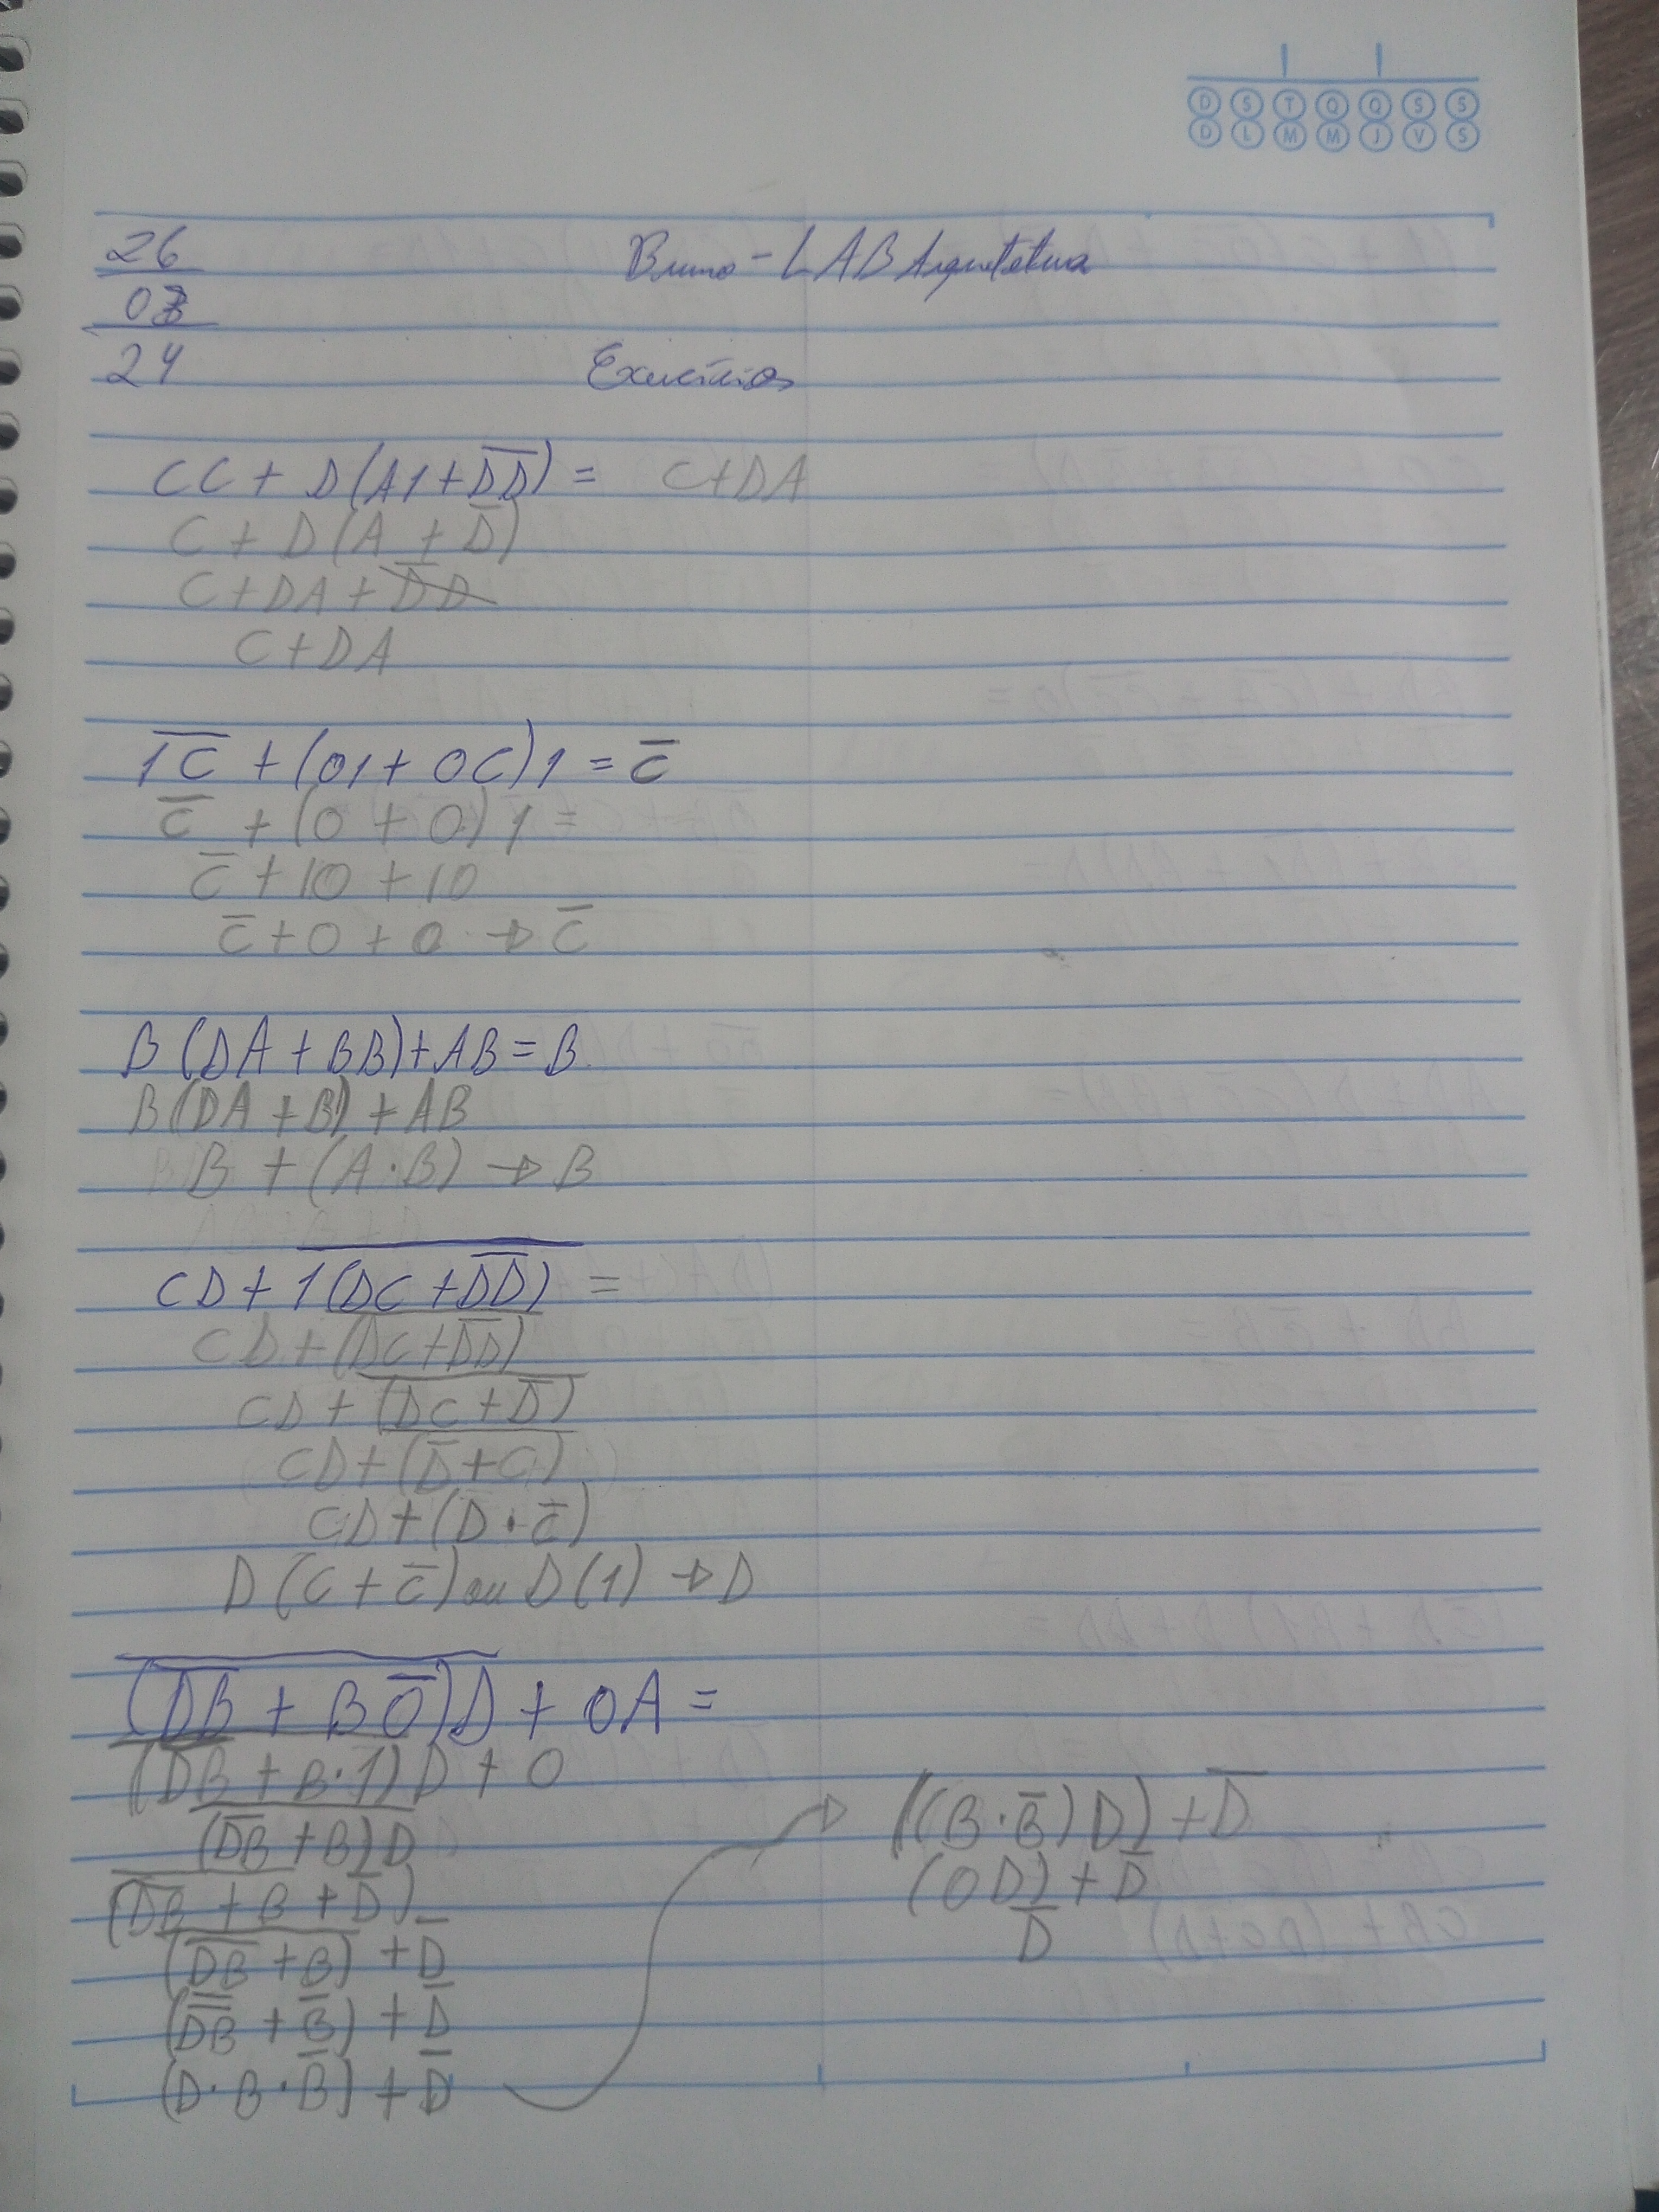 D S T Q Q S S
D L M M J V S
26
03
24
Bruno - LAB Arquitetura
Exercícios
CC + D(A1 + D̅D̅) = C+DA
C + D(A + D̅)
C + DA + D̅D
C+DA
1̅C̅ + (01 + 0C)1 = C̅
C̅ + (0 + 0)1 =
C̅ + 10 + 10
C̅ + 0 + 0 → C̅
B(DA + BB) + AB = B
B(DA + B) + AB
B + (A·B) → B
CD + \overline{1(DC + \overline{DD})} =
CD + \overline{(DC + \overline{DD})}
CD + \overline{(DC + D̅)}
CD + \overline{(D̅ + C)}
CD + (D · C̅)
D(C + C̅) ou D(1) → D
\overline{(\overline{DB} + B0̅)D} + 0A =
\overline{(\overline{DB} + B·1)D} + 0
\overline{(\overline{DB} + B)D}
(\overline{\overline{DB} + B} + D̅)
\overline{(\overline{DB} + B)} + D̅
(\overline{\overline{DB}} + B̅) + D̅
(D · B · B̅) + D̅
((B · B̅)D) + D̅
(0D) + D̅
D̅